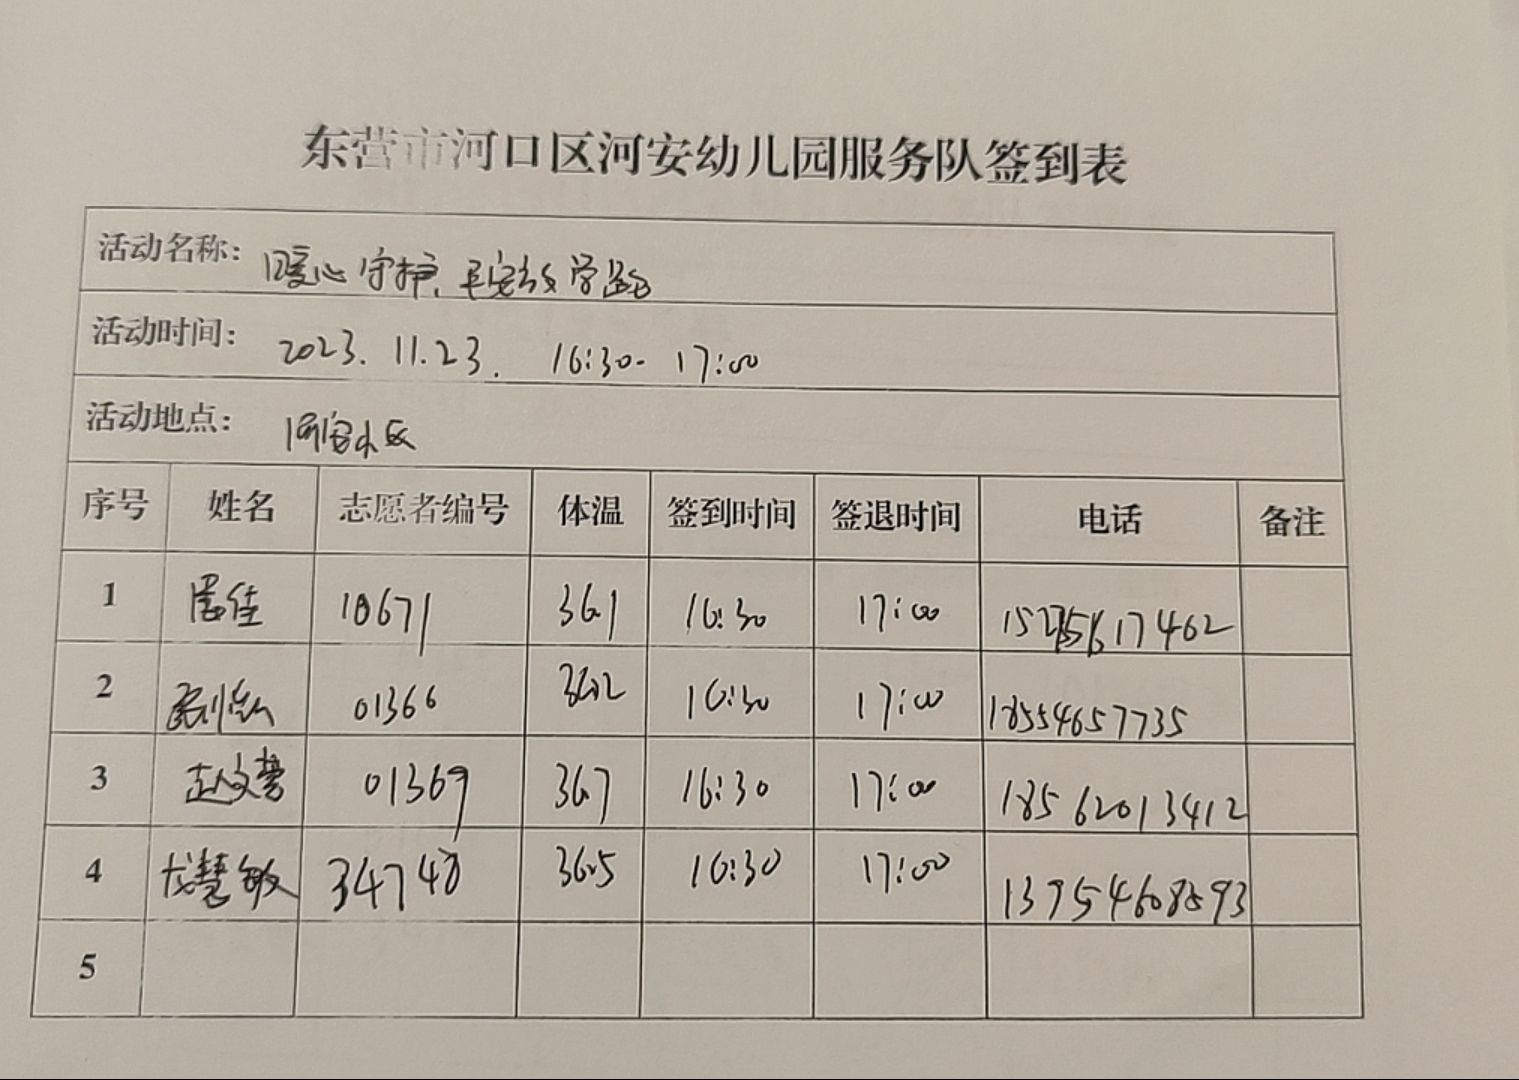 东营市河口区河安幼儿园服务队签到表
活动名称: 暖心守护,平安放学路
活动时间: 2023.11.23. 16:30-17:00
活动地点: 河安小区
序号 姓名 志愿者编号 体温 签到时间 签退时间 电话 备注
1 佳 10671 36.1 16:30 17:00 617462
2 01366 36.2 16:30 17:00 18554657735
3 赵文营 01369 36.7 16:30 17:00 18562013412
4 戈慧敏 34748 36.5 16:30 17:00 13954608893
5